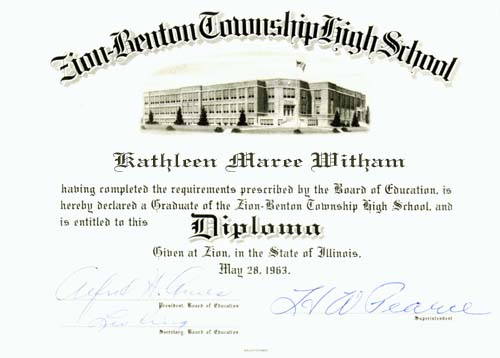 Zion-Benton Township High School
Kathleen Maree Witham
having completed the requirements prescribed by the Board of Education, is
hereby declared a Graduate of the Zion-Benton Township High School, and
is entitled to this Diploma
Given at Zion, in the State of Illinois,
May 28, 1963.
Alfred H.
President, Board of Education
H W Pearce
Superintendent
Secretary, Board of Education